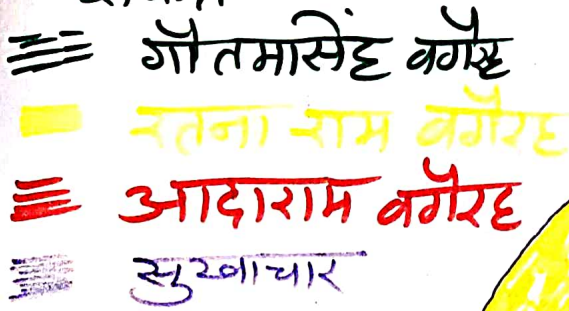 गौतमासिंह वगैरह
रतना राम वगैरह
आदाराम वगैरह
सुखाचार